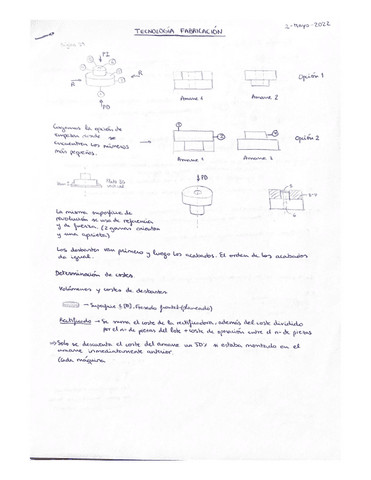 TECNOLOGÍA FABRICACIÓN
2-Mayo-2022
PI
R
R
PD
Amarre 1
Amarre 2
Opción 1
Cogemos la opción de
empezar donde se
encuentran los números
más pequeños.
1
2
Amarre 1
Amarre 2
Opción 2
PD
La misma superficie de
revolución se usa de referencia
y de fuerza. (2 garras orientan
y una aprieta)
Los desbastes van primero y luego los acabados. El orden de los acabados
da igual.
Determinación de costes.
Volúmenes y costes de desbastes.
Superficie 1 (PD). Fresado frontal (planeado)
Rectificado → Se suma el coste de la rectificadora, además del coste dividido
por el nº de piezas del lote + coste de operación entre el nº de piezas
⇒ Solo se descuenta el coste del amarre un 50% si estaba montado en el
amarre inmediatamente anterior.
(Cada máquina